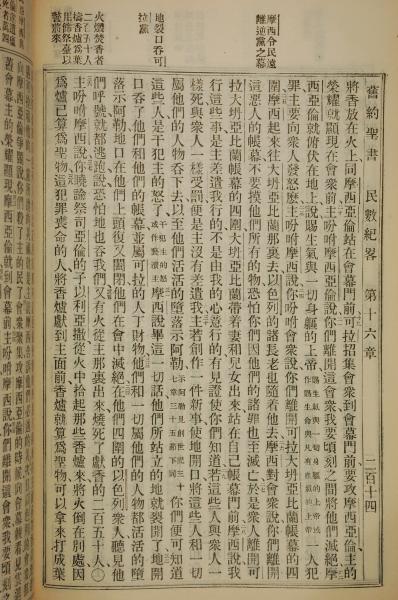 舊約聖書 民數紀畧 第十六章 二百十四
摩西令民遠
離逆黨之幕
地裂口吞可
拉黨
火燬焚香者
二百五十人
將香放在火上同摩西亞倫站在會幕門前可拉招集會衆到會幕門前要攻摩西亞倫主的
榮耀就顯現在會衆前主吩咐摩西亞倫說你們離開這會衆我要頃刻之間將他們滅絕摩
西亞倫就俯伏在地上說賜生氣與一切身軀的上帝一人犯
罪主要向衆人發怒麽主吩咐摩西說你吩咐會衆說你們離開可拉大坍亞比蘭帳幕的四
圍摩西起來往大坍亞比蘭那裏去以色列的諸長老也隨着他去摩西對會衆說你們離開
這惡人的帳幕不要摸他們所有的物恐怕你們因他們的諸罪也至滅亡於是衆人離開可
拉大坍亞比蘭帳幕的四圍大坍亞比蘭帶着妻和兒女出來站在自己帳幕門前摩西說我
行這些事是主差遣我行的不是由我的心意行的有見證使你們知道若這些人與衆人一
樣死與衆人一樣受罰便是主沒有差遣我主若創作一件新事使地開口將這些人和一切
屬他們的人物吞下去以至他們活活的墮落示阿勒你們便可知道
這些人是干犯主的怒了摩西說畢這一切話他們所站立的地就裂開了地開
口吞了他們和他們的帳幕並屬可拉的人丁財物他們和一切屬他們的人物都活活的墮
落示阿勒地口在他們上頭復又關閉他們在會中滅絕在他們四圍的以色列衆人聽見他
們呼號就都逃跑說恐怕地也吞我們又有火從主那裏出來燒死了獻香的二百五十人○
主吩咐摩西說你曉諭祭司亞倫的子以利亞撒從火中拾起那些香爐來將火倒在別處因
爲爐已算爲聖物這犯罪喪命的人將香爐獻到主面前香爐就算爲聖物可以拿來打成葉